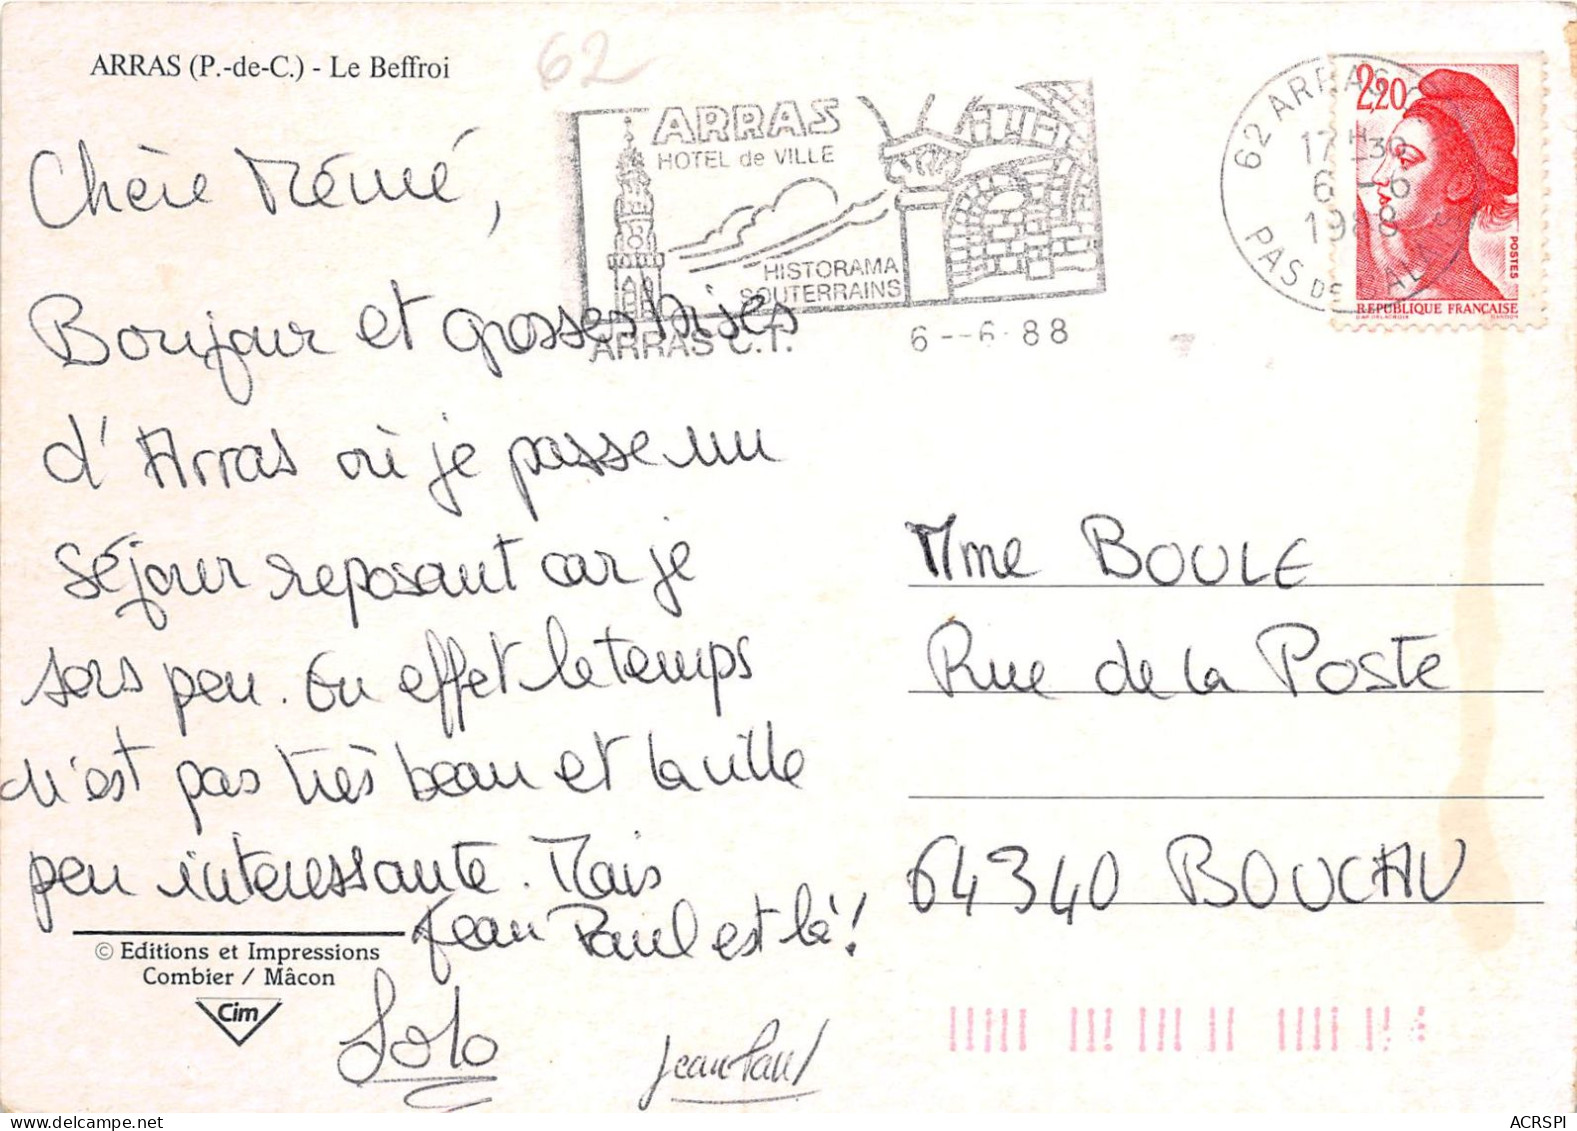 ARRAS (P.-de-C.) - Le Beffroi
62
ARRAS
HOTEL de VILLE
HISTORAMA
SOUTERRAINS
ARRAS C.T.
6 -- 6. 88
62 ARRAS
17H30
6 - 6
1988
PAS DE CALAIS
2,20
POSTES
REPUBLIQUE FRANÇAISE
Chère Mémé,
Bonjour et grosses bises
d'Arras où je passe un
séjour reposant car je
sors peu. En effet le temps
n'est pas très beau et la ville
peu interessante. Mais
Jean Paul est là !
Lolo
Jean Paul
Mme BOULE
Rue de la Poste
64340 BOUCAU
© Editions et Impressions
Combier / Mâcon
Cim
ACRSPI